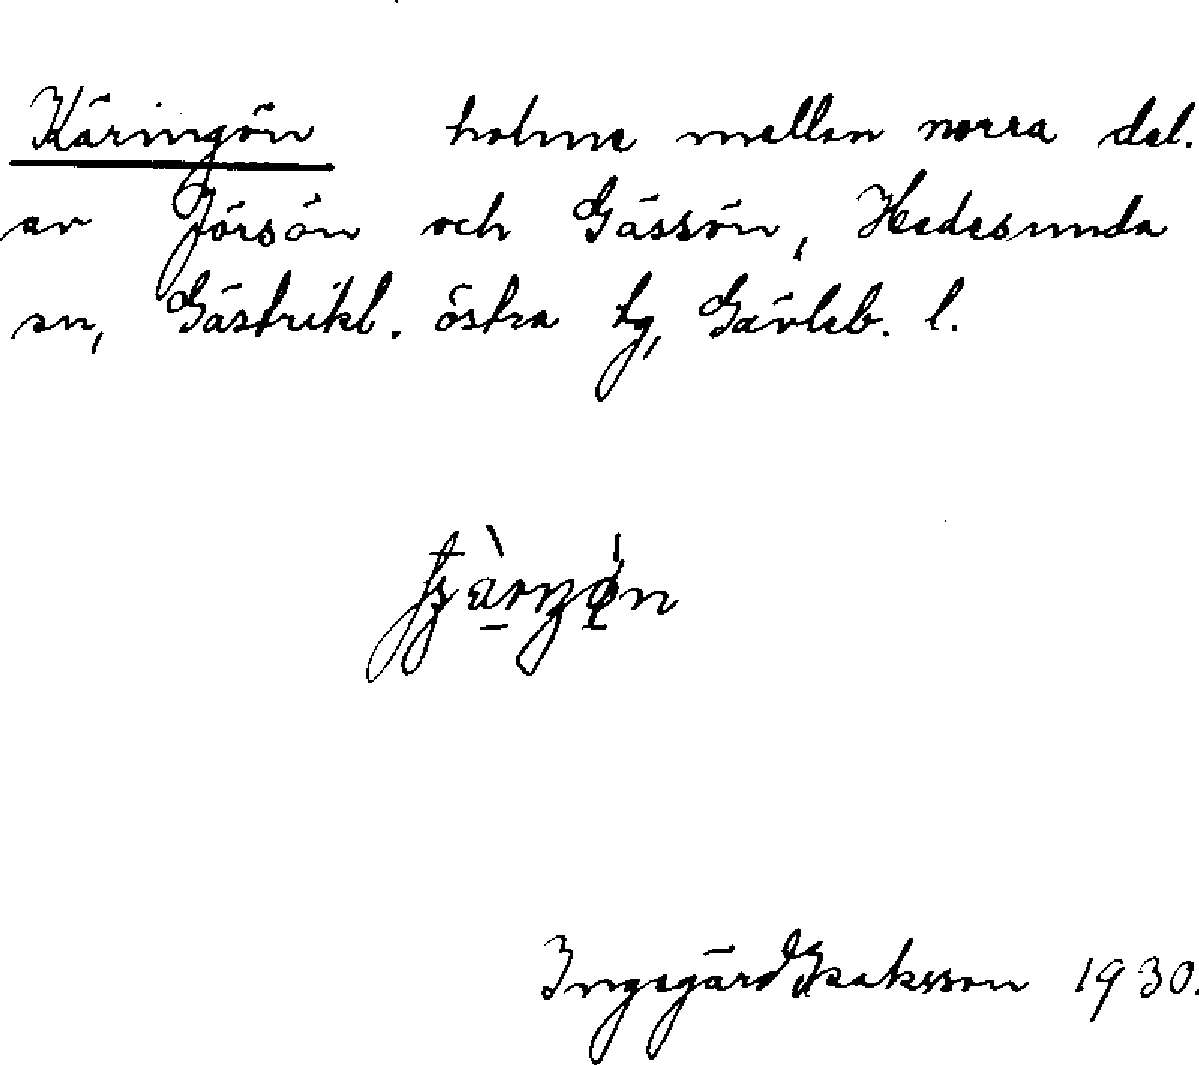 Käringön holme mellan norra del.
av Jörsön och Gässön, Hedesunda
sn, Gästrikl. östra tg, Gävleb. l.
Ingegärd Isaksson 1930.